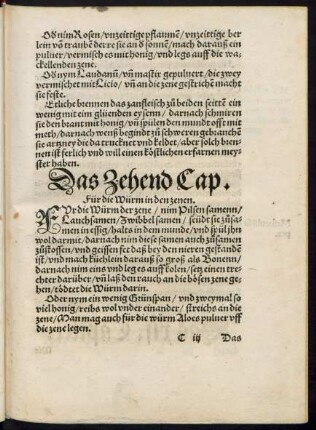 Od nim Rosen / vnzeittige pflaumẽ / vnzeittige ber
lein võ traubẽ derre sie an d sonnẽ / mach darauß ein
puluer / vermisch es mit honig / vnd legs auff die wa-
ckellenden zene.
Od nym Laudanũ / vñ mastix gepuluert / die zwey
vermischet mit Licio / vñ an die zene gestrichẽ macht
sie feste.
Etliche brennen das zanfleisch zů beiden seittẽ ein
wenig mit eim glüenden eysenn / darnach schmiren
sie den brant mit honig / vñ spülen den mundt offt mit
meth / darnach wenß begindt zů schweren gebrauchẽ
sie artzney die da trucknet vnd keldet / aber solch bren-
nen ist ferlich vnd will einen köstlichen erfarnen mey-
ster haben.
Das Zehend Cap.
Für die Würm in den zenen.
FVr die Würm der zene / nim Pilsen samenn /
Lauchsamen / Zwibbel samen / seüdt sie zůsa-
men in essig / halts in dem munde / vnd spül jhn
wol darmit / darnach nim diese samen auch zůsamen
zůstossen / vnd geissen fet daß bey den nieren gestandẽ
ist / vnd mach küchlein darauß so groß als Bonenn /
darnach nim eins vnd leg es auff kolen / setz einen tre-
chter darüber / vñ laß den rauch an die bösen zene ge-
hen / tödtet die Würm darin.
Oder nym ein wenig Grünspan / vnd zweymal so
viel honig / reibs wol vnder einander / streichs an die
zene / Man mag auch für die würm Aloes puluer vff
die zene legen.
C iij Das